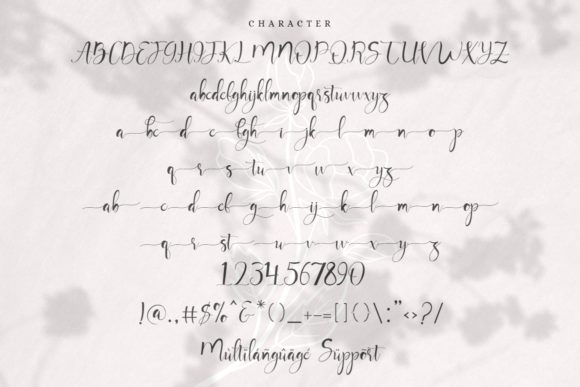 CHARACTER
ABCDEFGHIJKLMNOPQRSTUVWXYZ
abcdefghijklmnopqrstuvwxyz
a bc d e fgh i jk l m n o p
q r s tu v w x yz
ab c d ef g h ij k l m n op
q r st u v w x y z
1234567890
!@.,#$%^&*()_+-=[]{}\:"<>?/
Mùltiláñgûägé Süppõřt